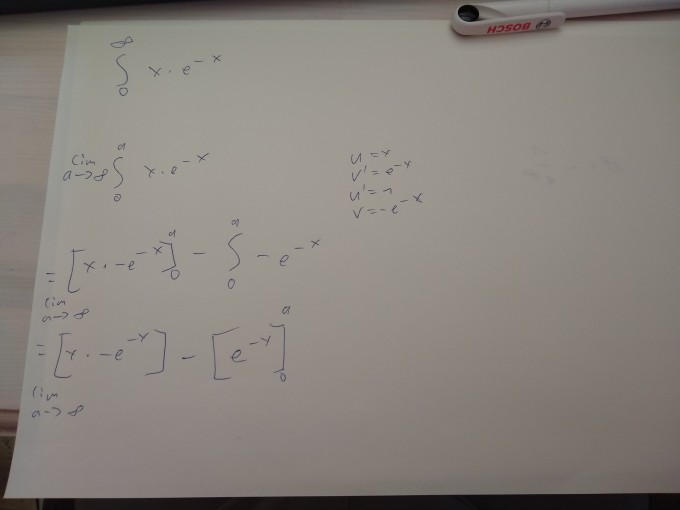 BOSCH
∞
∫ x · e^-x
0
lim a→∞ ∫_0^a x · e^-x
u = x
v' = e^-x
u' = 1
v = -e^-x
= lim a→∞ [x · -e^-x]_0^a - ∫_0^a - e^-x
= lim a→∞ [x · -e^-x] - [e^-x]_0^a